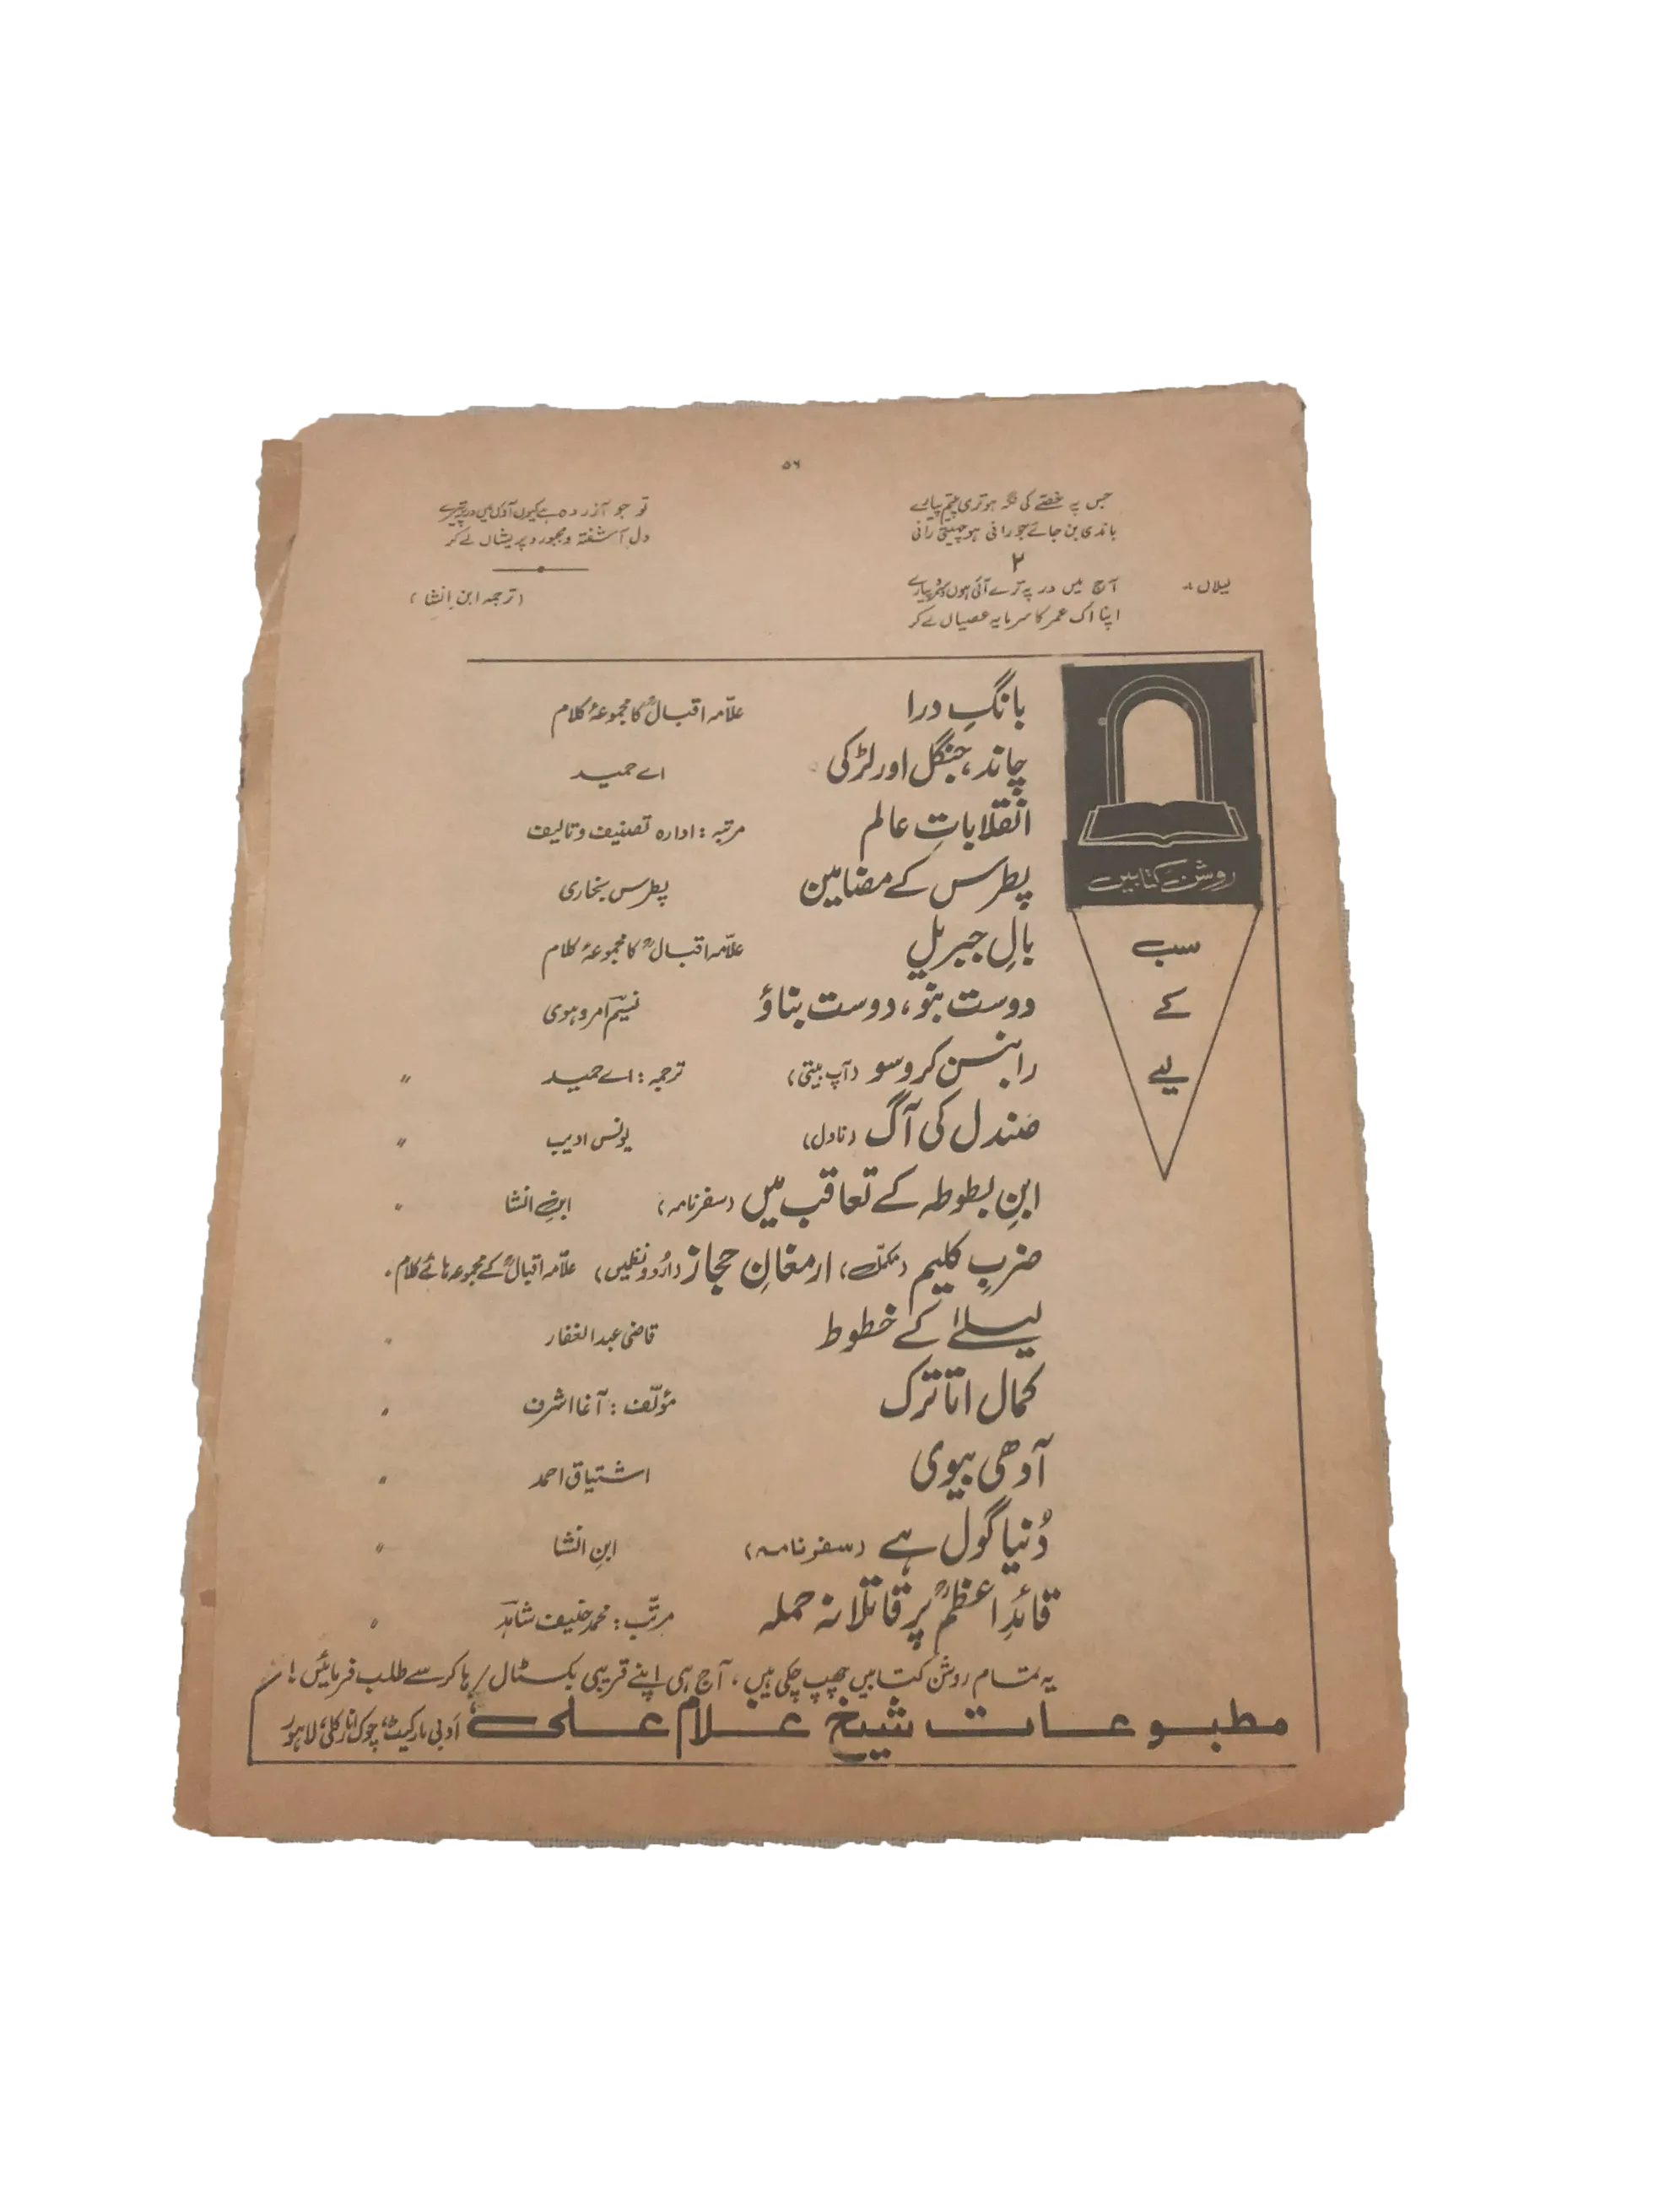 ۵۶
جس پہ غصّے کی نگہ ہو تری چنیسر پیارے
باندی بن جائے جو رانی ہو چہیتی رانی
۲
لیلاں :
آج میں در پہ ترے آئی ہوں پیارے
اپنا اک عمر کا سرمایہ عصیاں لے کر
تو جو آزردہ ہے کیوں آؤں گی میں در پہ ترے
دل آشفتہ و مجبور و پریشاں لے کر
(ترجمہ ابن انشا)
روشن کتابیں
سب
کے
لیے
بانگِ درا علّامہ اقبالؒ کا مجموعۂ کلام
چاند، جنگل اور لڑکی اے حمید
انقلاباتِ عالم مرتبہ : ادارہ تصنیف و تالیف
پطرس کے مضامین پطرس بخاری
بالِ جبریل علّامہ اقبالؒ کا مجموعۂ کلام
دوست بنو، دوست بناؤ نسیم امروہوی
رابنسن کروسو (آپ بیتی) ترجمہ : اے حمید "
صندل کی آگ (ناول) یونس ادیب "
ابنِ بطوطہ کے تعاقب میں (سفرنامہ) ابنِ انشا "
ضربِ کلیم (مکمّل)، ارمغانِ حجاز (اُردو نظمیں) علّامہ اقبالؒ کے مجموعہ ہائے کلام "
لیلےٰ کے خطوط قاضی عبدالغفار "
کمال اتاترک مؤلّف : آغا اشرف "
آدھی بیوی اشتیاق احمد "
دُنیا گول ہے (سفرنامہ) ابنِ انشا "
قائدِاعظمؒ پر قاتلانہ حملہ مرتّب : محمد حنیف شاہد "
یہ تمام روشن کتابیں چھپ چکی ہیں، آج ہی اپنے قریبی بکسٹال/ہاکر سے طلب فرمائیں!
مطبوعات شیخ غلام علی، ادبی مارکیٹ، چوک انارکلی، لاہور